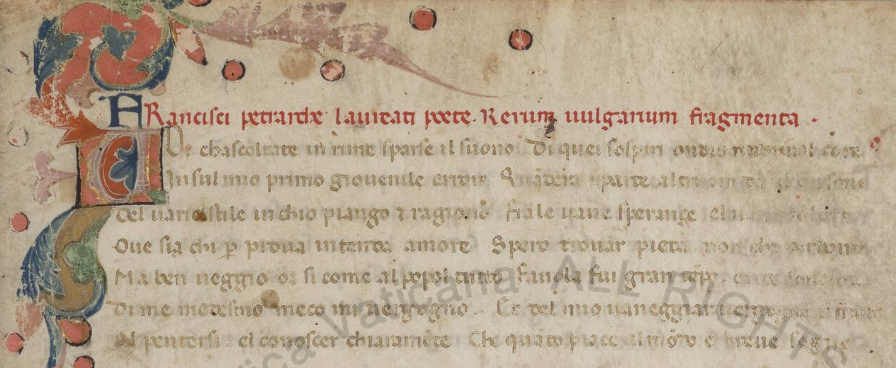 FRancisci petrarche laureati poete. Rerum vulgarium fragmenta.
Voi chascoltate in rime sparse il suono Di quei sospiri ondio nudriva l core
In sul mio primo giovenile errore Quādera in parte altruom da
Del vario stile in chio piango τ ragiono Fra le vane sperançe
Ove sia chi ꝑ prova intenda amore Spero trovar pieta non che perdono
Ma ben veggio or si come al popol tutto Favola fui gran tēpo
Di me medesmo meco mi vergogno. Et del mio vaneggiar vergogna
El pentersi el conoscer chiaramēte Che quāto piace al mōdo e breve sogno